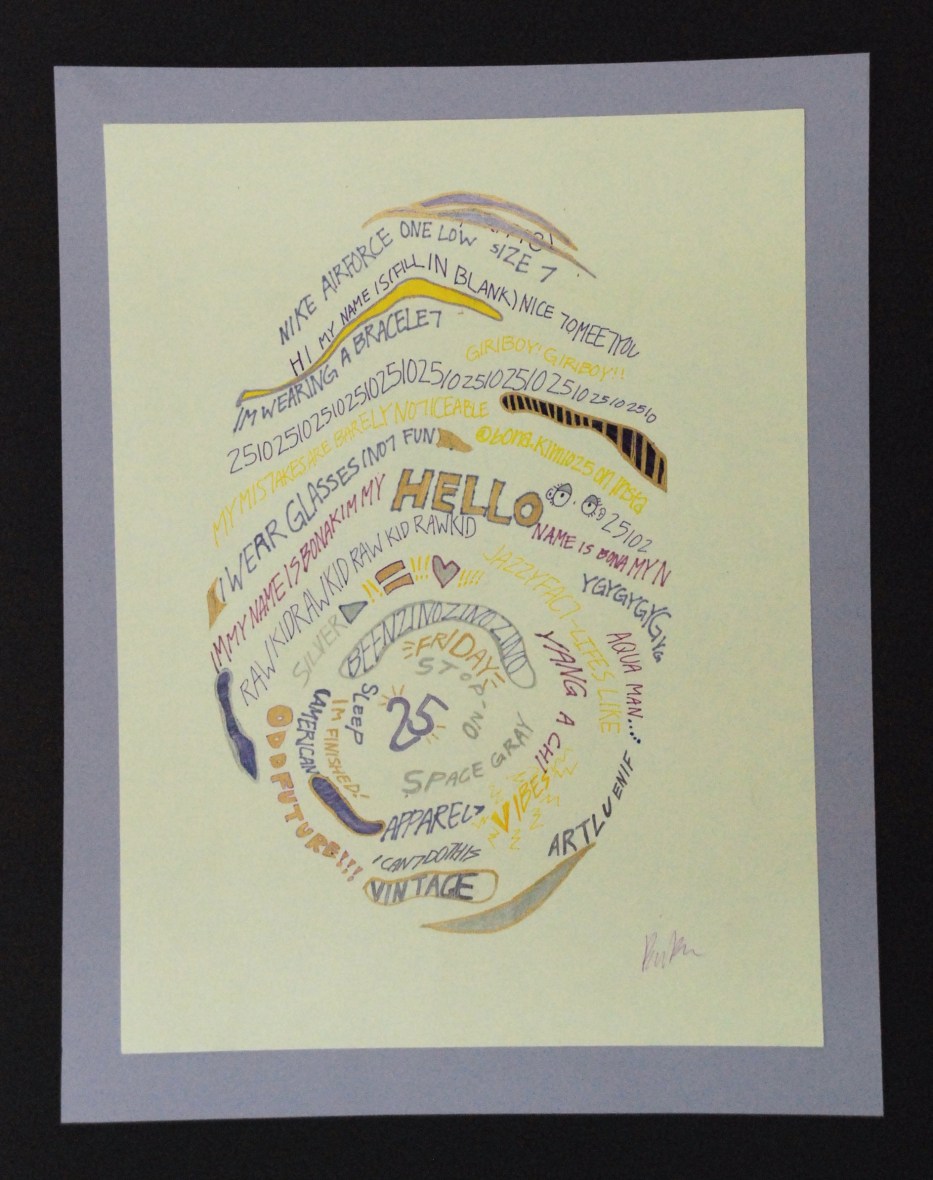 NIKE AIRFORCE ONE LOW SIZE 7
HI MY NAME IS (FILL IN BLANK) NICE TO MEET YOU
I'M WEARING A BRACELET
GIRIBOY! GIRIBOY!!
25102510251025102510251025102510251025102510
MY MISTAKES ARE BARELY NOTICEABLE
@bona.kim1025 on insta
I WEAR GLASSES (NOT FUN)
HELLO
25102
IM MY NAME IS BONAKIM MY
NAME IS BONA MY N
RAW KIDRAWKID RAW KID RAWKID
YGYGYGYGYG
JAZZYFACT-LIFES LIKE
SILVER
!! = !!! !!!!
BEENZINOZINOZINO
FRIDAY
STOP
ON-
YANG A CHI
AQUA MAN....
25
SLEEP
IM FINISHED!
(AMERICAN
ODDFUTURE!!!
SPACE GRAY
VIBES
APPAREL>
ARTLUENIF
I CANT DO THIS
VINTAGE